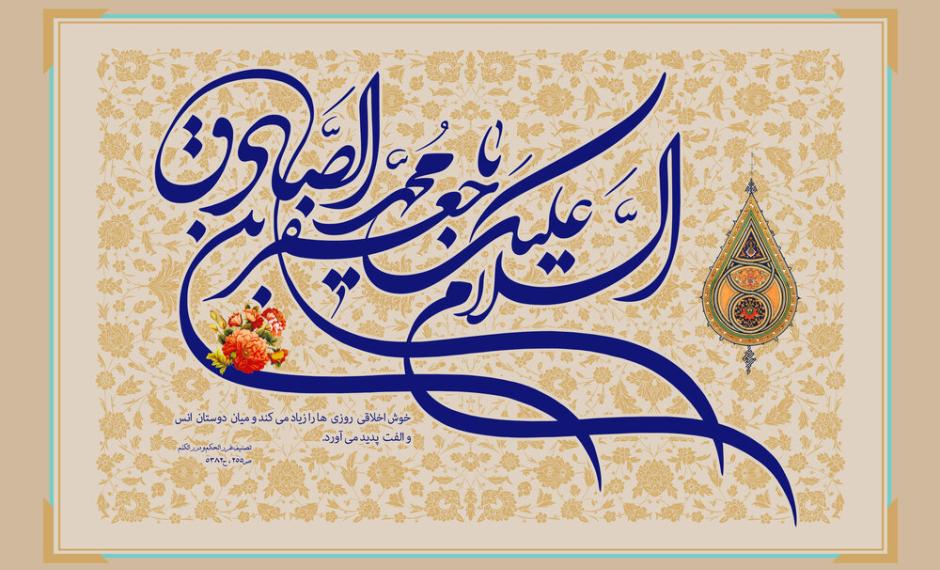 السلام علیک یا جعفر بن محمد الصادق
خوش اخلاقی روزی ها را زیاد می کند و میان دوستان انس
و الفت پدید می آورد.
تصنیف غرر الحکم و درر الکلم
ص۲۵۵، ح۵۳۸۲